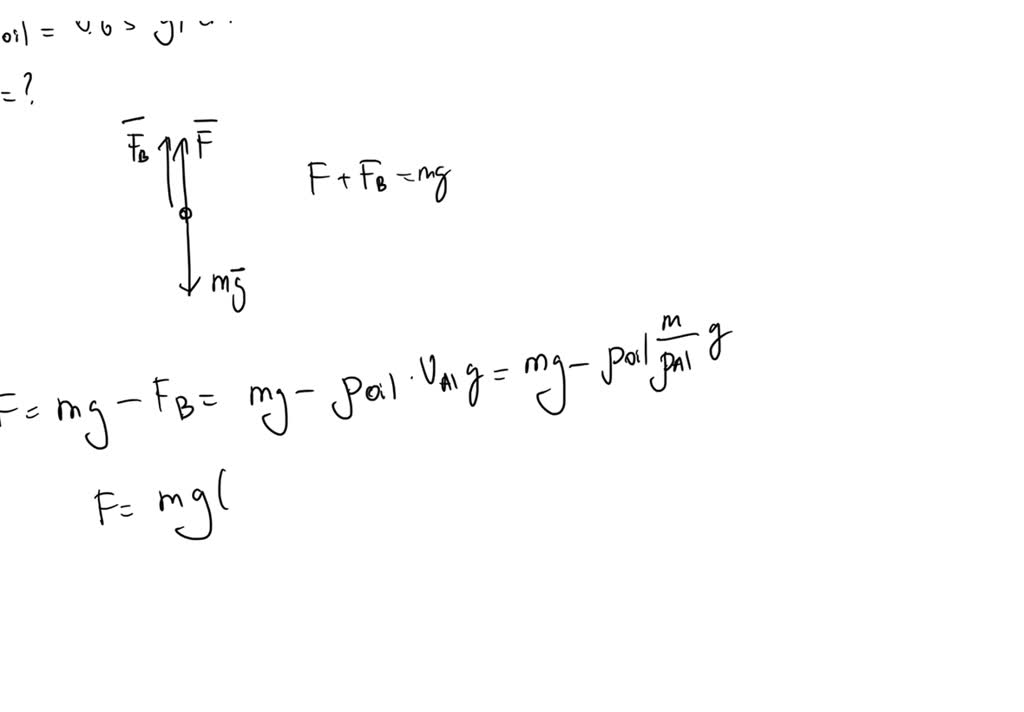 oil =
= ?
F̄_B F̄
F + F_B = mg
mḡ
F = mg - F_B = mg - ρoil · V_Al g = mg - ρoil m/ρAl g
F = mg(